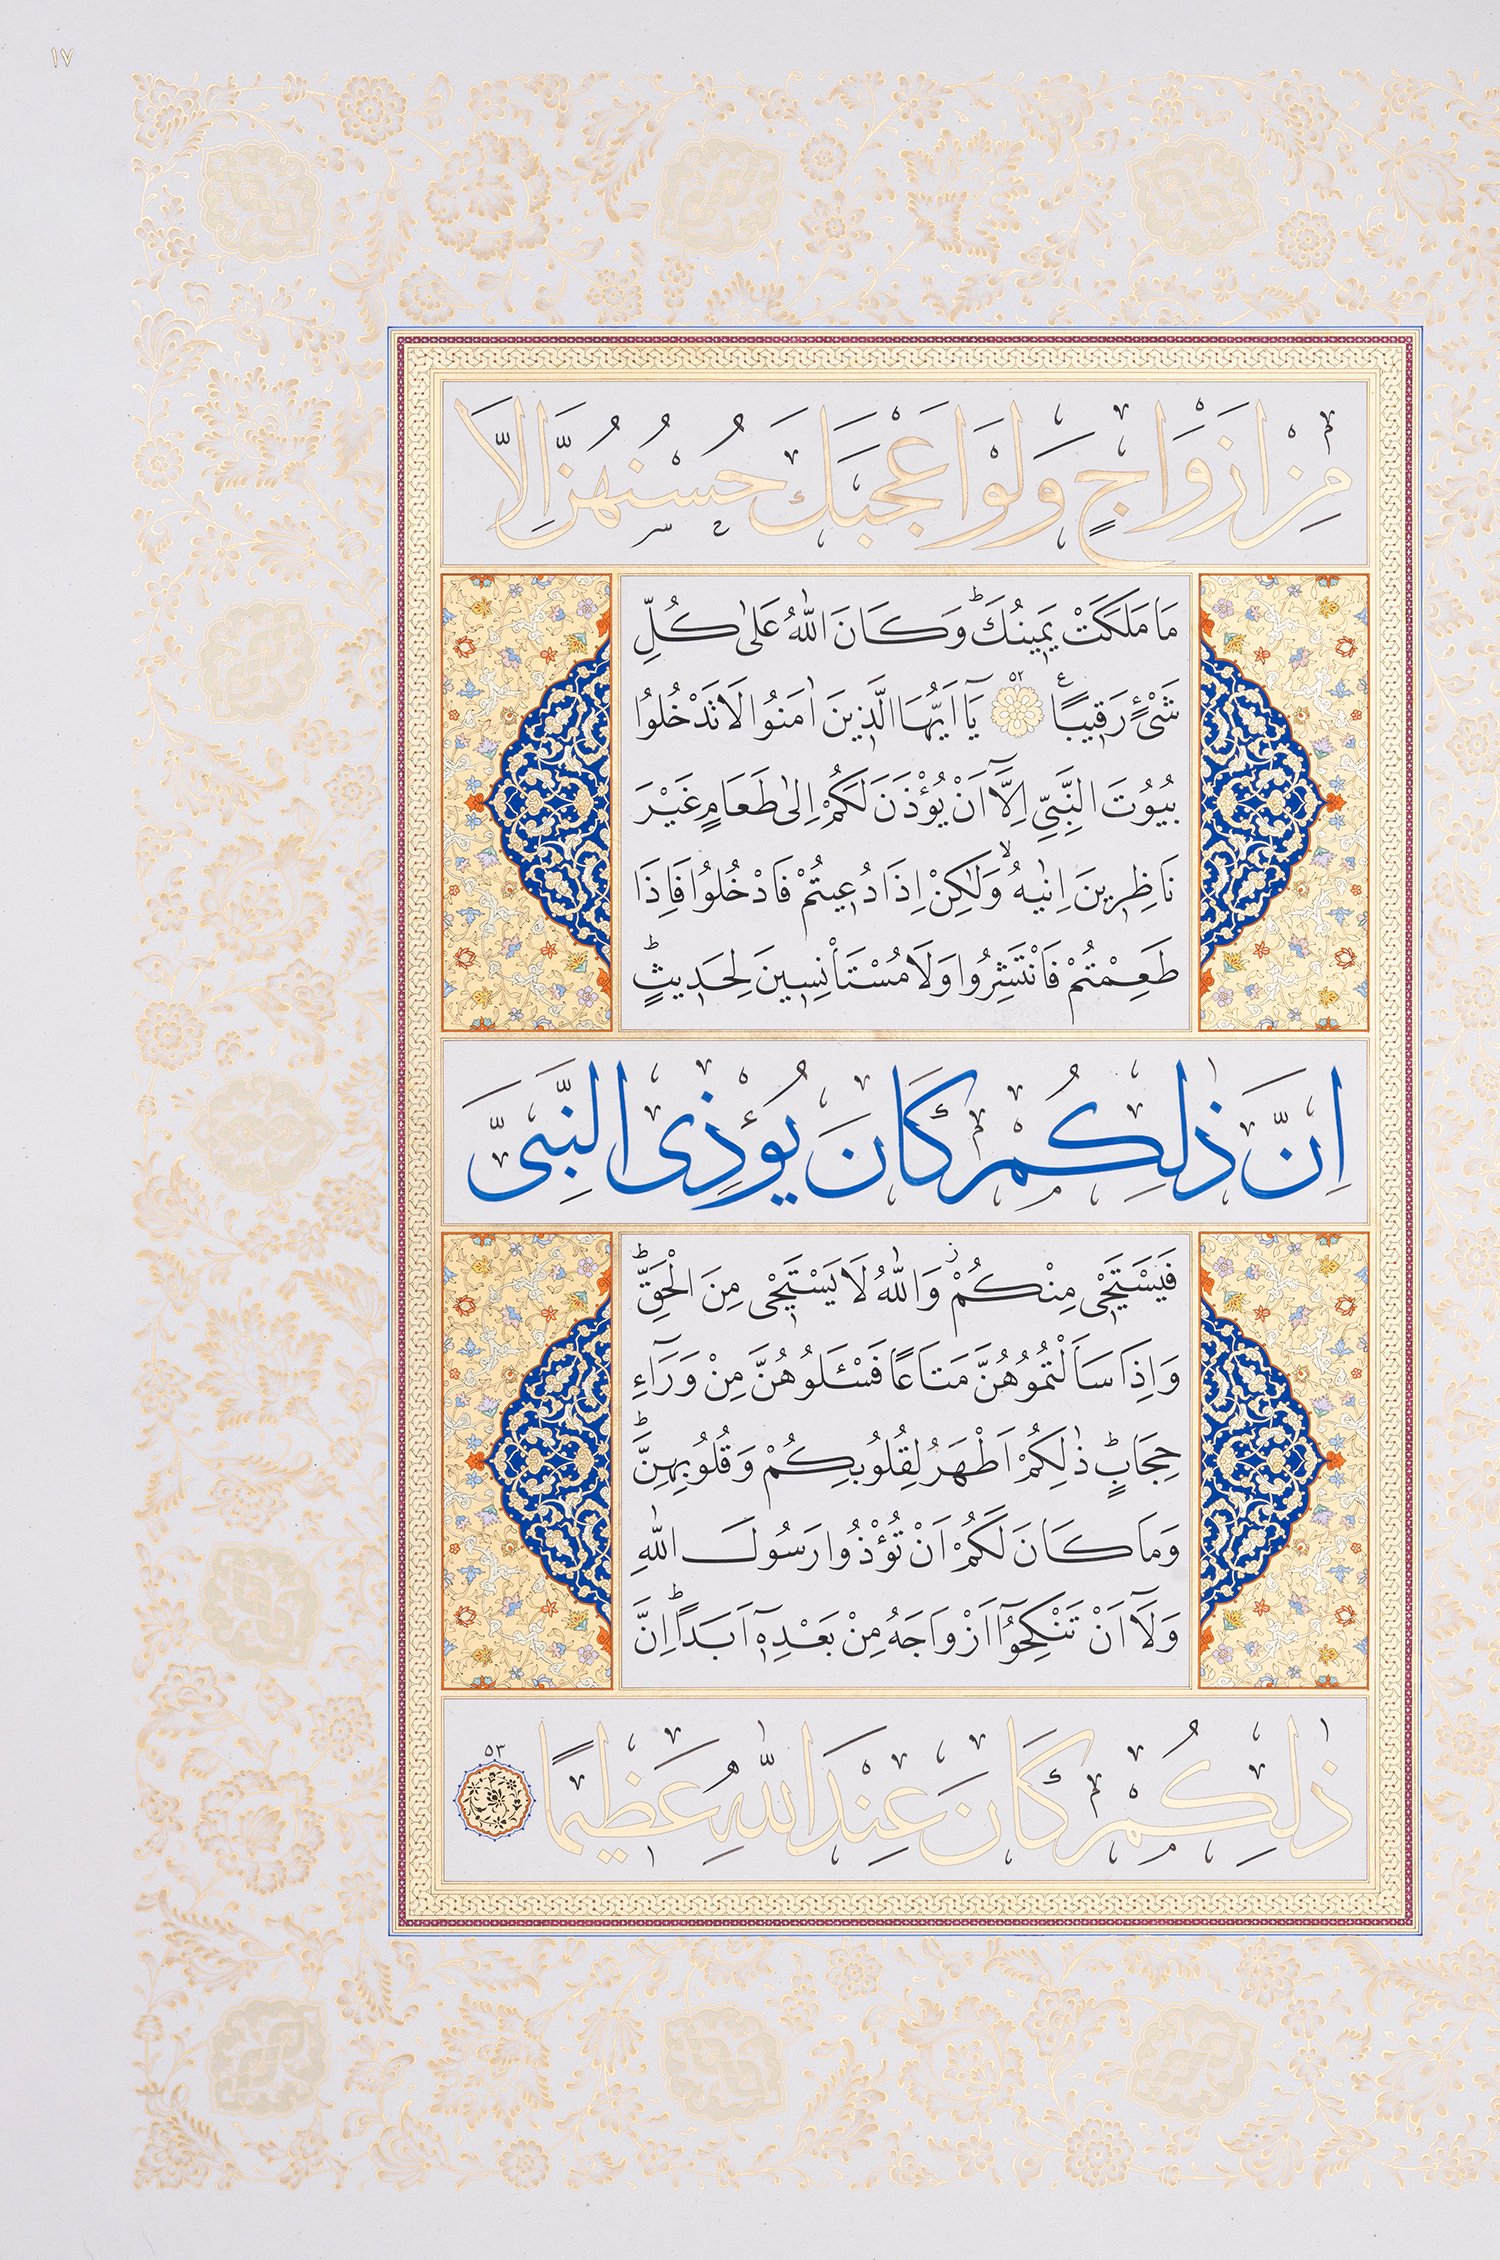 ١٧
مِنْ اَزْوَاجٍ وَلَوْ اَعْجَبَكَ حُسْنُهُنَّ اِلَّا
مَا مَلَكَتْ يَمٖينُكَؕ وَكَانَ اللّٰهُ عَلٰى كُلِّ
شَىْءٍ رَقٖيبًا ࣖ ٥٢ يَٓا اَيُّهَا الَّذٖينَ اٰمَنُوا لَا تَدْخُلُوا
بُيُوتَ النَّبِىِّ اِلَّٓا اَنْ يُؤْذَنَ لَكُمْ اِلٰى طَعَامٍ غَيْرَ
نَاظِرٖينَ اِنٰيهُۙ وَلٰكِنْ اِذَا دُعٖيتُمْ فَادْخُلُوا فَاِذَا
طَعِمْتُمْ فَانْتَشِرُوا وَلَا مُسْتَأْنِسٖينَ لِحَدٖيثٍؕ
اِنَّ ذٰلِكُمْ كَانَ يُؤْذِى النَّبِىَّ
فَيَسْتَحْيٖ مِنْكُمْؗ وَاللّٰهُ لَا يَسْتَحْيٖ مِنَ الْحَقِّؕ
وَاِذَا سَاَلْتُمُوهُنَّ مَتَاعًا فَسْـَٔلُوهُنَّ مِنْ وَرَٓاءِ
حِجَابٍؕ ذٰلِكُمْ اَطْهَرُ لِقُلُوبِكُمْ وَقُلُوبِهِنَّؕ
وَمَا كَانَ لَكُمْ اَنْ تُؤْذُوا رَسُولَ اللّٰهِ
وَلَٓا اَنْ تَنْكِحُٓوا اَزْوَاجَهُ مِنْ بَعْدِهٖٓ اَبَدًاؕ اِنَّ
ذٰلِكُمْ كَانَ عِنْدَ اللّٰهِ عَظٖيمًا ٥٣